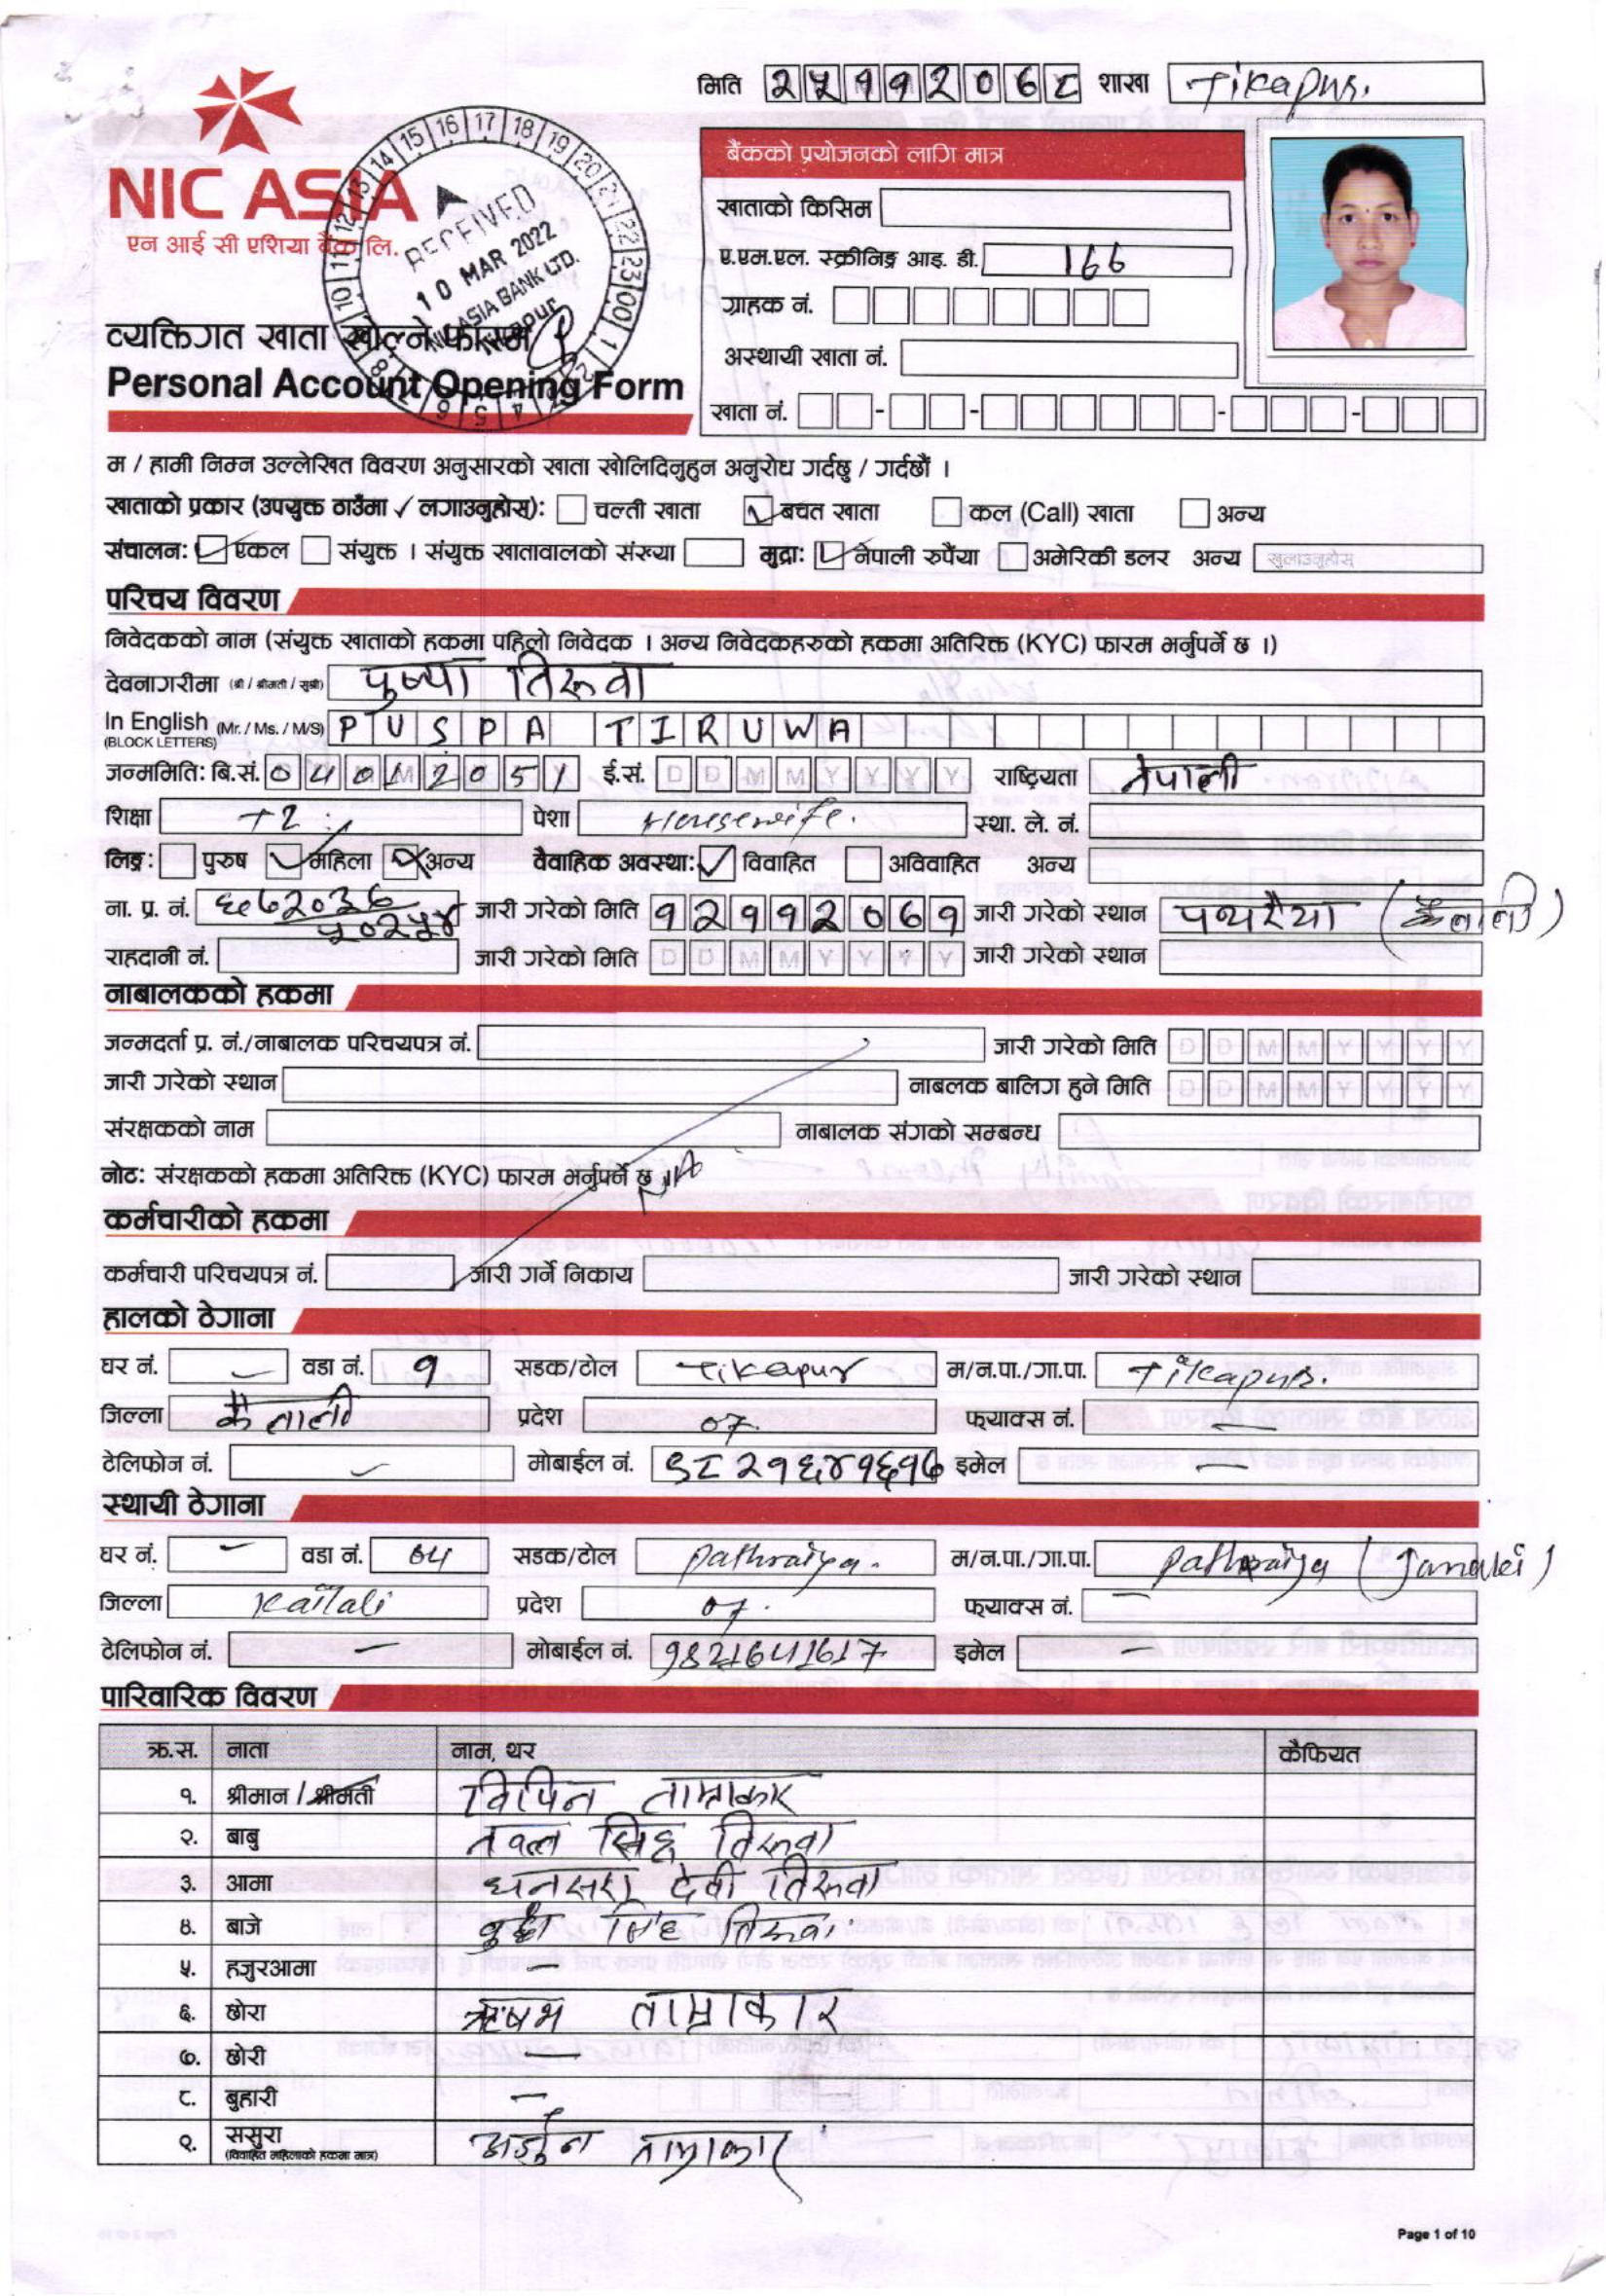 मिति २५११२०७८ शाखा Tikapur.
NIC ASIA
एन आई सी एशिया बैंक लि.
RECEIVED
10 MAR 2022
NIC ASIA BANK LTD.
बैंकको प्रयोजनको लागि मात्र
खाताको किसिम
ए.एम.एल. स्क्रीनिङ्ग आइ. डी. 166
ग्राहक नं.
अस्थायी खाता नं.
खाता नं.
व्यक्तिगत खाता खोल्ने फारम
Personal Account Opening Form
म / हामी निम्न उल्लेखित विवरण अनुसारको खाता खोलिदिनुहुन अनुरोध गर्दछु / गर्दछौं ।
खाताको प्रकार (उपयुक्त ठाउँमा ✓ लगाउनुहोस्): चल्ती खाता ✓ बचत खाता कल (Call) खाता अन्य
संचालन: ✓ एकल संयुक्त । संयुक्त खातावालको संख्या मुद्रा: ✓ नेपाली रुपैंया अमेरिकी डलर अन्य खुलाउनुहोस
परिचय विवरण
निवेदकको नाम (संयुक्त खाताको हकमा पहिलो निवेदक । अन्य निवेदकहरुको हकमा अतिरिक्त (KYC) फारम भर्नुपर्ने छ ।)
देवनागरीमा (श्री / श्रीमती / सुश्री) पुष्पा तिरूवा
In English (Mr. / Ms. / M/S) PUSPA TIRUWA
(BLOCK LETTERS)
जन्ममिति: बि.सं. 04012051 ई.सं. D D M M Y Y Y Y राष्ट्रियता नेपाली
शिक्षा +2 पेशा Housewife. स्था. ले. नं.
लिङ्ग: पुरुष ✓ महिला अन्य वैवाहिक अवस्था: ✓ विवाहित अविवाहित अन्य
ना. प्र. नं. जारी गरेको मिति १२११२०७१ जारी गरेको स्थान पथरैया (कैलाली)
राहदानी नं. जारी गरेको मिति D D M M Y Y Y Y जारी गरेको स्थान
नाबालकको हकमा
जन्मदर्ता प्र. नं./नाबालक परिचयपत्र नं. जारी गरेको मिति
जारी गरेको स्थान नाबलक बालिग हुने मिति
संरक्षकको नाम नाबालक संगको सम्बन्ध
नोट: संरक्षकको हकमा अतिरिक्त (KYC) फारम भर्नुपर्ने छ NA
कर्मचारीको हकमा
कर्मचारी परिचयपत्र नं. जारी गर्ने निकाय जारी गरेको स्थान
हालको ठेगाना
घर नं. – वडा नं. १ सडक/टोल Tikapur म/न.पा./गा.पा. Tikapur.
जिल्ला कैलाली प्रदेश 07. फ्याक्स नं. —
टेलिफोन नं. – मोबाईल नं. ९८२१६४१६१७ इमेल —
स्थायी ठेगाना
घर नं. – वडा नं. 04 सडक/टोल Pathraiya. म/न.पा./गा.पा. Pathraiya (Janaki)
जिल्ला Kailali प्रदेश 07. फ्याक्स नं. —
टेलिफोन नं. — मोबाईल नं. 9821641617 इमेल —
पारिवारिक विवरण
क्र.स. नाता नाम, थर कैफियत
१. श्रीमान / श्रीमती विपिन ताम्राकार
२. बाबु नवल सिंह तिरूवा
३. आमा धनसरा देवी तिरूवा
४. बाजे सिंह तिरूवा
५. हजुरआमा —
६. छोरा ऋषभ ताम्राकार
७. छोरी —
८. बुहारी —
९. ससुरा अर्जुन ताम्राकार
(विवाहित महिलाको हकमा मात्र)
Page 1 of 10